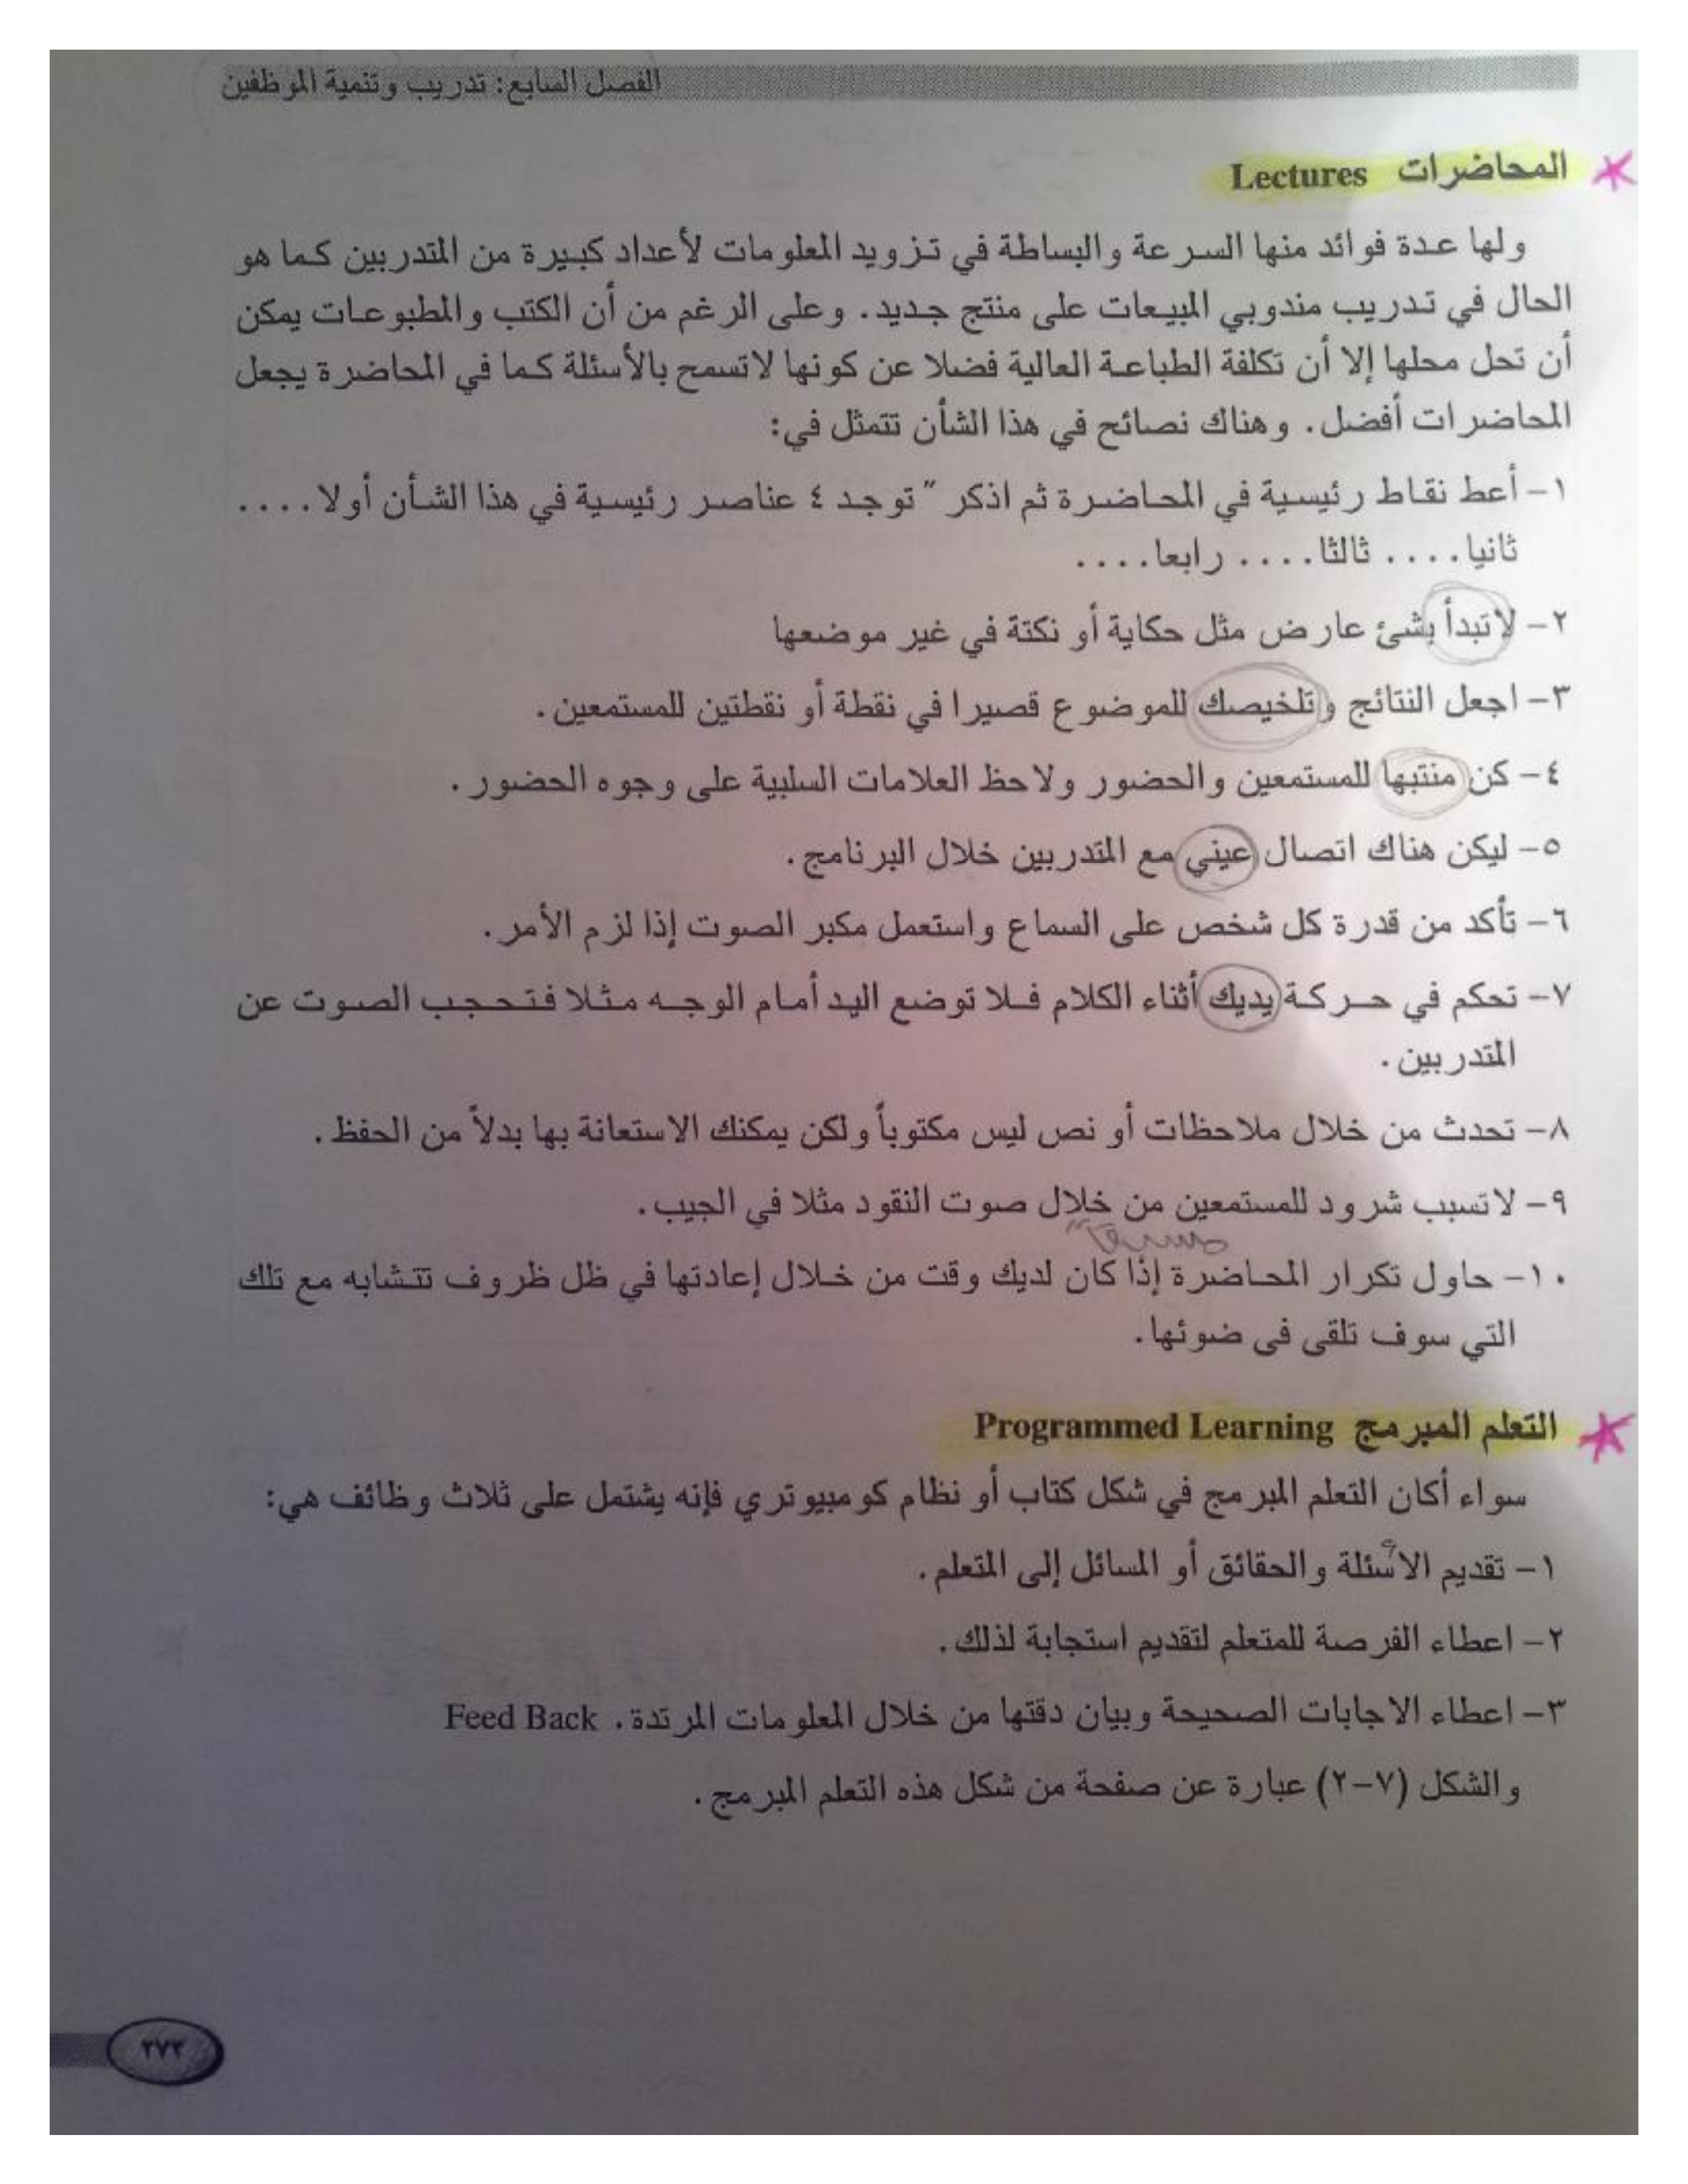 الفصل السابع: تدريب وتنمية الموظفين
المحاضرات Lectures
ولها عدة فوائد منها السرعة والبساطة في تزويد المعلومات لأعداد كبيرة من المتدربين كما هو
الحال في تدريب مندوبي المبيعات على منتج جديد. وعلى الرغم من أن الكتب والمطبوعات يمكن
أن تحل محلها إلا أن تكلفة الطباعة العالية فضلا عن كونها لاتسمح بالأسئلة كما في المحاضرة يجعل
المحاضرات أفضل. وهناك نصائح في هذا الشأن تتمثل في:
١- أعط نقاط رئيسية في المحاضرة ثم اذكر " توجد ٤ عناصر رئيسية في هذا الشأن أولا....
ثانيا.... ثالثا.... رابعا....
٢- لاتبدأ بشئ عارض مثل حكاية أو نكتة في غير موضعها
٣- اجعل النتائج وتلخيصك للموضوع قصيرا في نقطة أو نقطتين للمستمعين.
٤- كن منتبها للمستمعين والحضور ولاحظ العلامات السلبية على وجوه الحضور.
٥- ليكن هناك اتصال عيني مع المتدربين خلال البرنامج.
٦- تأكد من قدرة كل شخص على السماع واستعمل مكبر الصوت إذا لزم الأمر.
٧- تحكم في حركة يديك أثناء الكلام فلا توضع اليد أمام الوجه مثلا فتحجب الصوت عن
المتدربين.
٨- تحدث من خلال ملاحظات أو نص ليس مكتوباً ولكن يمكنك الاستعانة بها بدلاً من الحفظ.
٩- لاتسبب شرود للمستمعين من خلال صوت النقود مثلا في الجيب.
١٠- حاول تكرار المحاضرة إذا كان لديك وقت من خلال إعادتها في ظل ظروف تتشابه مع تلك
التي سوف تلقى فى ضوئها.
التعلم المبرمج Programmed Learning
سواء أكان التعلم المبرمج في شكل كتاب أو نظام كومبيوتري فإنه يشتمل على ثلاث وظائف هي:
١- تقديم الاسئلة والحقائق أو المسائل إلى المتعلم.
٢- اعطاء الفرصة للمتعلم لتقديم استجابة لذلك.
٣- اعطاء الاجابات الصحيحة وبيان دقتها من خلال المعلومات المرتدة. Feed Back
والشكل (٧-٢) عبارة عن صفحة من شكل هذه التعلم المبرمج.
٢٧٣